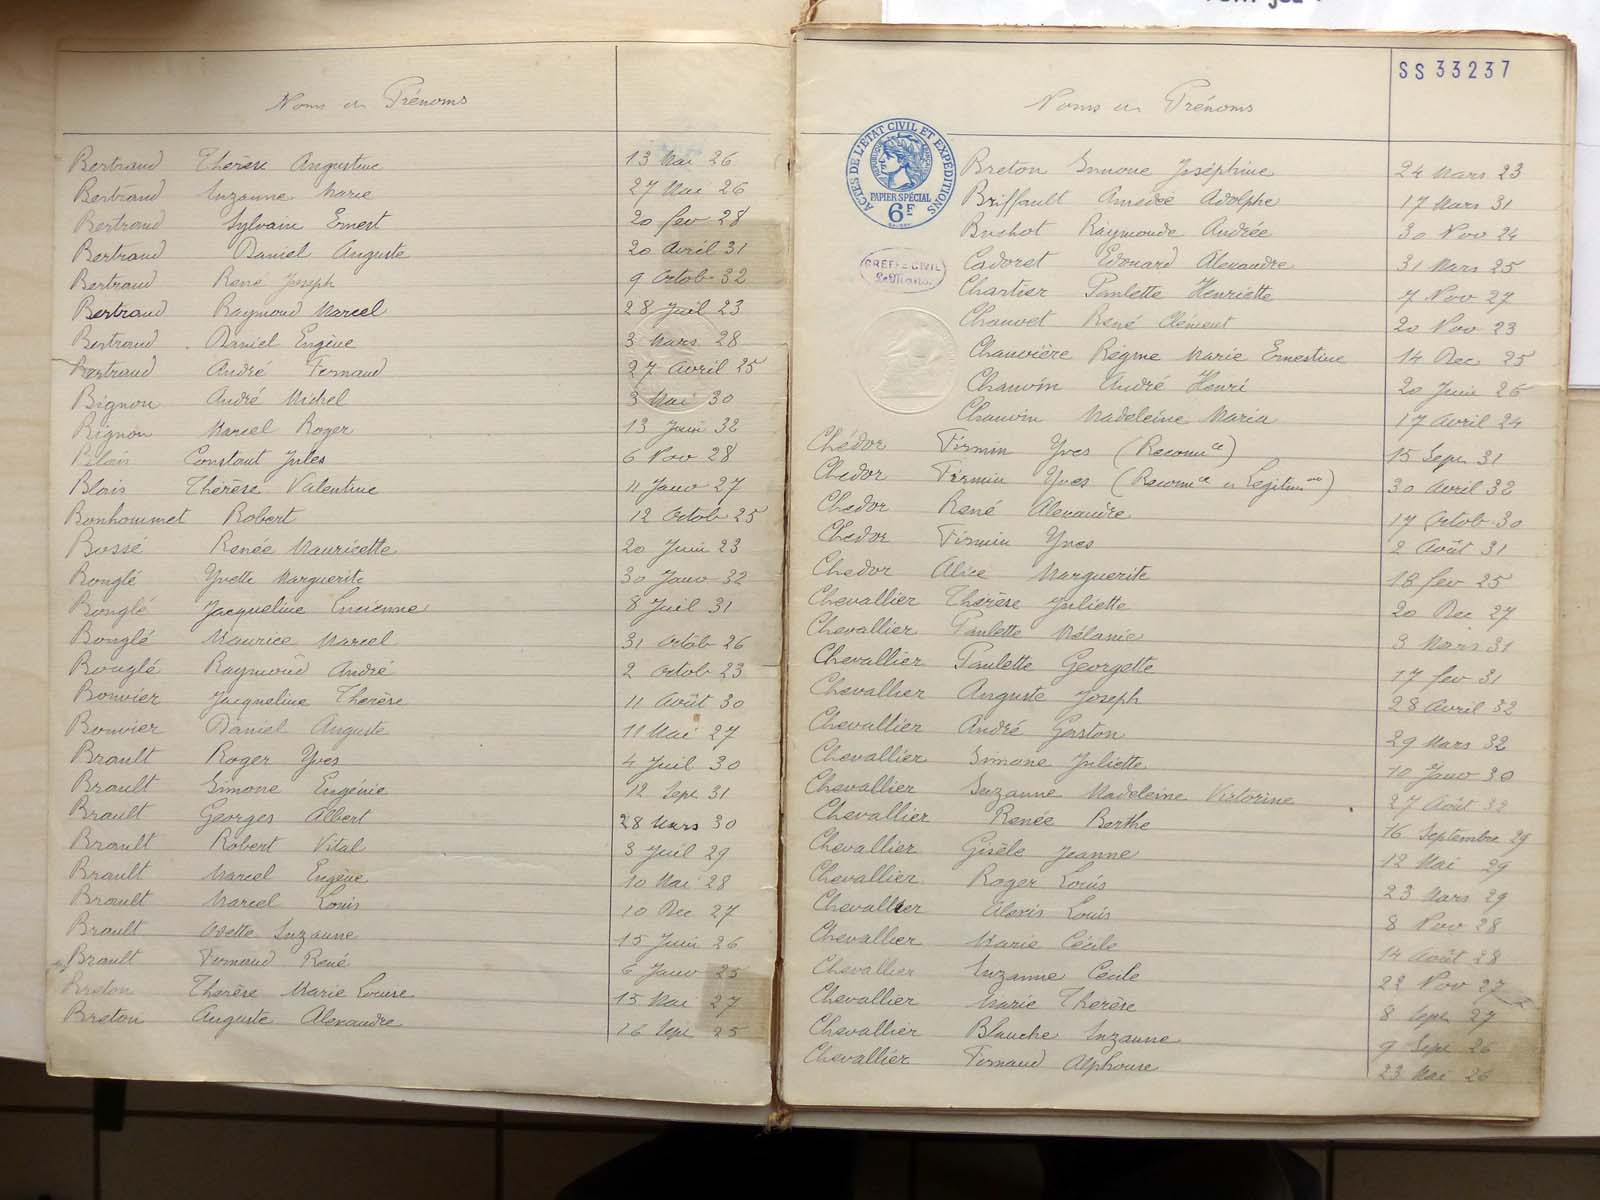 Noms et Prénoms
Bertrand Thérèse Augustine 13 Mai 26
Bertrand Suzanne Marie 27 Mai 26
Bertrand Sylvain Ernest 20 fev 28
Bertrand Daniel Auguste 20 Avril 31
Bertrand René Joseph 9 Octob 32
Bertrand Raymond Marcel 28 Juil 23
Bertrand Daniel Eugène 3 Mars 28
Bertrand André Fernand 27 Avril 25
Bignon André Michel 3 Mai 30
Bignon Marcel Roger 13 Juin 32
Blais Constant Jules 6 Nov 28
Blais Thérèse Valentine 11 Janv 27
Bonhommet Robert 12 Octob 25
Bossé Renée Mauricette 20 Juin 23
Bouglé Yvette Marguerite 30 Janv 32
Bouglé Jacqueline Lucienne 8 Juil 31
Bouglé Maurice Marcel 31 Octob 26
Bouglé Raymond André 2 Octob 23
Bouvier Jacqueline Thérèse 11 Août 30
Bouvier Daniel Auguste 11 Mai 27
Brault Roger Yves 4 Juil 30
Brault Simone Eugénie 12 Sept 31
Brault Georges Albert 28 Mars 30
Brault Robert Vital 3 Juil 29
Brault Marcel Eugène 10 Mai 28
Brault Marcel Louis 10 Dec 27
Brault Odette Suzanne 15 Juin 26
Brault Fernand René 6 Janv 25
Breton Thérèse Marie Louise 15 Mai 27
Breton Auguste Alexandre 16 Sept 25
SS 33237
Noms et Prénoms
ACTES DE L'ÉTAT CIVIL ET EXPÉDITIONS
PAPIER SPÉCIAL
6F
GREFFE CIVIL
Breton Simone Joséphine 24 Mars 23
Briffault Amédée Adolphe 17 Mars 31
Bushot Raymonde Andrée 30 Nov 24
Cadoret Edouard Alexandre 31 Mars 25
Chartier Paulette Henriette 7 Nov 27
Chauvet René Clément 20 Nov 23
Chauvière Régine Marie Ernestine 14 Dec 25
Chauvin André Henri 20 Juin 26
Chauvin Madeleine Maria 17 Avril 24
Chédor Firmin Yves (Reconnce) 15 Sept 31
Chedor Firmin Yves (Reconnce et Legitimon) 30 Avril 32
Chedor René Alexandre 17 Octob 30
Chedor Firmin Yves 2 Août 31
Chedor Alice Marguerite 18 fev 25
Chevallier Thérèse Juliette 20 Dec 27
Chevallier Paulette Mélanie 3 Mars 31
Chevallier Paulette Georgette 17 fev 31
Chevallier Auguste Joseph 28 Avril 32
Chevallier André Gaston 29 Mars 32
Chevallier Simone Juliette 10 Janv 30
Chevallier Suzanne Madeleine Victorine 27 Août 32
Chevallier Renée Berthe 16 Septembre 29
Chevallier Gisèle Jeanne 12 Mai 29
Chevallier Roger Louis 23 Mars 29
Chevallier Alexis Louis 8 Nov 28
Chevallier Marie Cécile 14 Août 28
Chevallier Suzanne Cécile 22 Nov 27
Chevallier Marie Thérèse 8 Sept 27
Chevallier Blanche Suzanne 9 Sept 26
Chevallier Fernand Alphonse 23 Mai 26